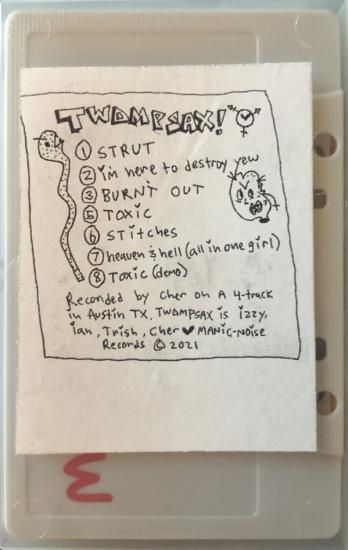 TWOMPSAX!
1 STRUT
2 im here to destroy yew
3 BURNT OUT
5 TOXIC
6 STitches
7 heaven & hell (all in one girl)
8 TOXIC (demo)
Reconded by Cher on A 4-track
in Austin TX, TWOMPSAX is izzy,
ian, Trish, Cher ♥ MANIC-NOISE
Records © 2021